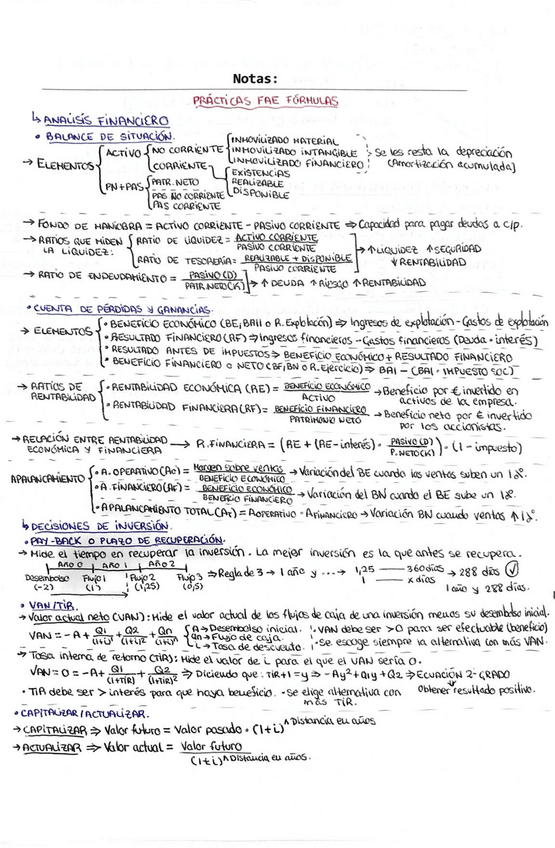 Notas:
PRÁCTICAS FAE FÓRMULAS
↳ ANÁLISIS FINANCIERO
• BALANCE DE SITUACIÓN.
→ ELEMENTOS { ACTIVO { NO CORRIENTE { INMOVILIZADO MATERIAL
INMOVILIZADO INTANGIBLE
INMOVILIZADO FINANCIERO } → Se les resta la depreciación (Amortización acumulada)
CORRIENTE { EXISTENCIAS
REALIZABLE
DISPONIBLE
PN+PAS { PATR. NETO
PAS NO CORRIENTE
PAS CORRIENTE
→ FONDO DE MANIOBRA = ACTIVO CORRIENTE - PASIVO CORRIENTE ⇒ Capacidad para pagar deudas a c/p.
→ RATIOS QUE MIDEN LA LIQUIDEZ: { RATIO DE LIQUIDEZ = ACTIVO CORRIENTE / PASIVO CORRIENTE
RATIO DE TESORERÍA = REALIZABLE + DISPONIBLE / PASIVO CORRIENTE ] → ↑LIQUIDEZ ↑SEGURIDAD ↓RENTABILIDAD
→ RATIO DE ENDEUDAMIENTO = PASIVO (D) / PATR. NETO (K) ] → ↑ DEUDA ↑ Riesgo ↑ RENTABILIDAD
• CUENTA DE PÉRDIDAS Y GANANCIAS.
→ ELEMENTOS { • BENEFICIO ECONÓMICO (BE, BAII o R. Explotación) ⇒ Ingresos de explotación - Gastos de explotación
• RESULTADO FINANCIERO (RF) ⇒ Ingresos financieros - Gastos financieros (Deuda · interés)
• RESULTADO ANTES DE IMPUESTOS ⇒ BENEFICIO ECONÓMICO + RESULTADO FINANCIERO
• BENEFICIO FINANCIERO O NETO (BF, BN o R. Ejercicio) ⇒ BAI - (BAI · IMPUESTO SOC)
→ RATIOS DE RENTABILIDAD { • RENTABILIDAD ECONÓMICA (RE) = BENEFICIO ECONÓMICO / ACTIVO → Beneficio por € invertido en activos de la empresa.
• RENTABILIDAD FINANCIERA (RF) = BENEFICIO FINANCIERO / PATRIMONIO NETO → Beneficio neto por € invertido por los accionistas.
→ RELACIÓN ENTRE RENTABILIDAD ECONÓMICA Y FINANCIERA → R. FINANCIERA = (RE + (RE - interés) · PASIVO (D) / P. NETO (K)) · (1 - impuesto)
APALANCAMIENTO { • A. OPERATIVO (Ao) = Margen sobre ventas / BENEFICIO ECONÓMICO → Variación del BE cuando las ventas suben un 1%.
• A. FINANCIERO (Af) = BENEFICIO ECONÓMICO / BENEFICIO FINANCIERO → Variación del BN cuando el BE sube un 1%.
• APALANCAMIENTO TOTAL (At) = A OPERATIVO · A FINANCIERO → Variación BN cuando ventas ↑ 1%.
↳ DECISIONES DE INVERSIÓN.
• PAY-BACK O PLAZO DE RECUPERACIÓN.
→ Mide el tiempo en recuperar la inversión. La mejor inversión es la que antes se recupera.
AÑO 0 AÑO 1 AÑO 2
Desembolso (-2) Flujo 1 (1) Flujo 2 (1,25) Flujo 3 (0,5) ⇒ Regla de 3 → 1 año y ... → 1,25 — 360 días
1 — x días → 288 días ✓
1 año y 288 días.
• VAN/TIR.
→ Valor actual neto (VAN): Mide el valor actual de los flujos de caja de una inversión menos su desembolso inicial.
VAN = -A + Q1/(1+i)¹ + Q2/(1+i)² + Qn/(1+i)ⁿ { A → Desembolso inicial.
Qn → Flujo de caja.
i → Tasa de descuento.
- VAN debe ser >0 para ser efectuable (beneficio)
- Se escoge siempre la alternativa con más VAN.
→ Tasa interna de retorno (TIR): Mide el valor de i para el que el VAN sería 0.
VAN = 0 = -A + Q1/(1+TIR) + Q2/(1+TIR)² ⇒ Diciendo que: TIR+1 = y ⇒ -Ay² + Q1y + Q2 ⇒ ECUACIÓN 2º GRADO
Obtener resultado positivo.
• TIR debe ser > interés para que haya beneficio. - Se elige alternativa con más TIR.
• CAPITALIZAR/ACTUALIZAR.
→ CAPITALIZAR ⇒ Valor futuro = Valor pasado · (1+i) ^ Distancia en años
→ ACTUALIZAR ⇒ Valor actual = Valor futuro / (1+i) ^ Distancia en años.